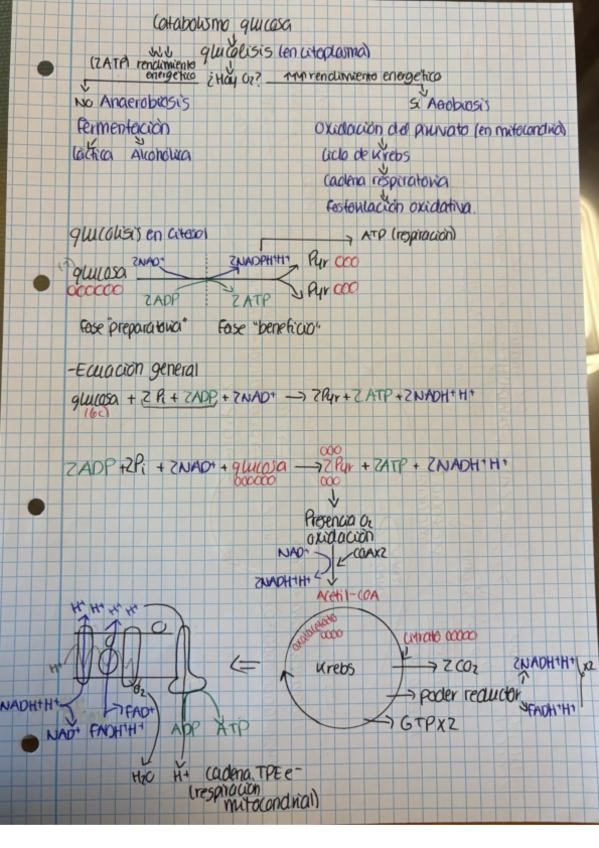 Catabolismo glucosa
glucólisis (en citoplasma)
(2ATP) rendimiento energético ¿Hay O₂? ↑↑↑ rendimiento energético
No Anaerobiosis
Sí Aerobiosis
Fermentación
Láctica Alcohólica
Oxidación del piruvato (en mitocondria)
Ciclo de Krebs
Cadena respiratoria
Fosforilación oxidativa.
glucólisis en citosol
ATP (respiración)
glucosa
000000
2NAD⁺
2NADPH⁺H⁺
Pyr 000
Pyr 000
2ADP
2ATP
Fase "preparatoria" Fase "beneficio"
-Ecuación general
glucosa + 2 Pi + 2ADP + 2NAD⁺ → 2Pyr + 2ATP + 2NADH⁺H⁺
(6C)
000
2ADP + 2Pi + 2NAD⁺ + glucosa → 2Pyr + 2ATP + 2NADH⁺H⁺
000000 000
Presencia O₂
oxidación
NAD⁺ COAX2
2NADH⁺H⁺
Acetil-COA
H⁺ H⁺ H⁺ H⁺
H⁺
oxalacetato
0000
Krebs
Citrato 00000
2CO₂
Poder reductor
2NADH⁺H⁺
FADH⁺H⁺
x2
GTPX2
O₂
NADH⁺H⁺
NAD⁺
FADH⁺H⁺
FAD⁺
ADP ATP
H₂O H⁺
Cadena TPE e-
(respiración
mitocondrial)